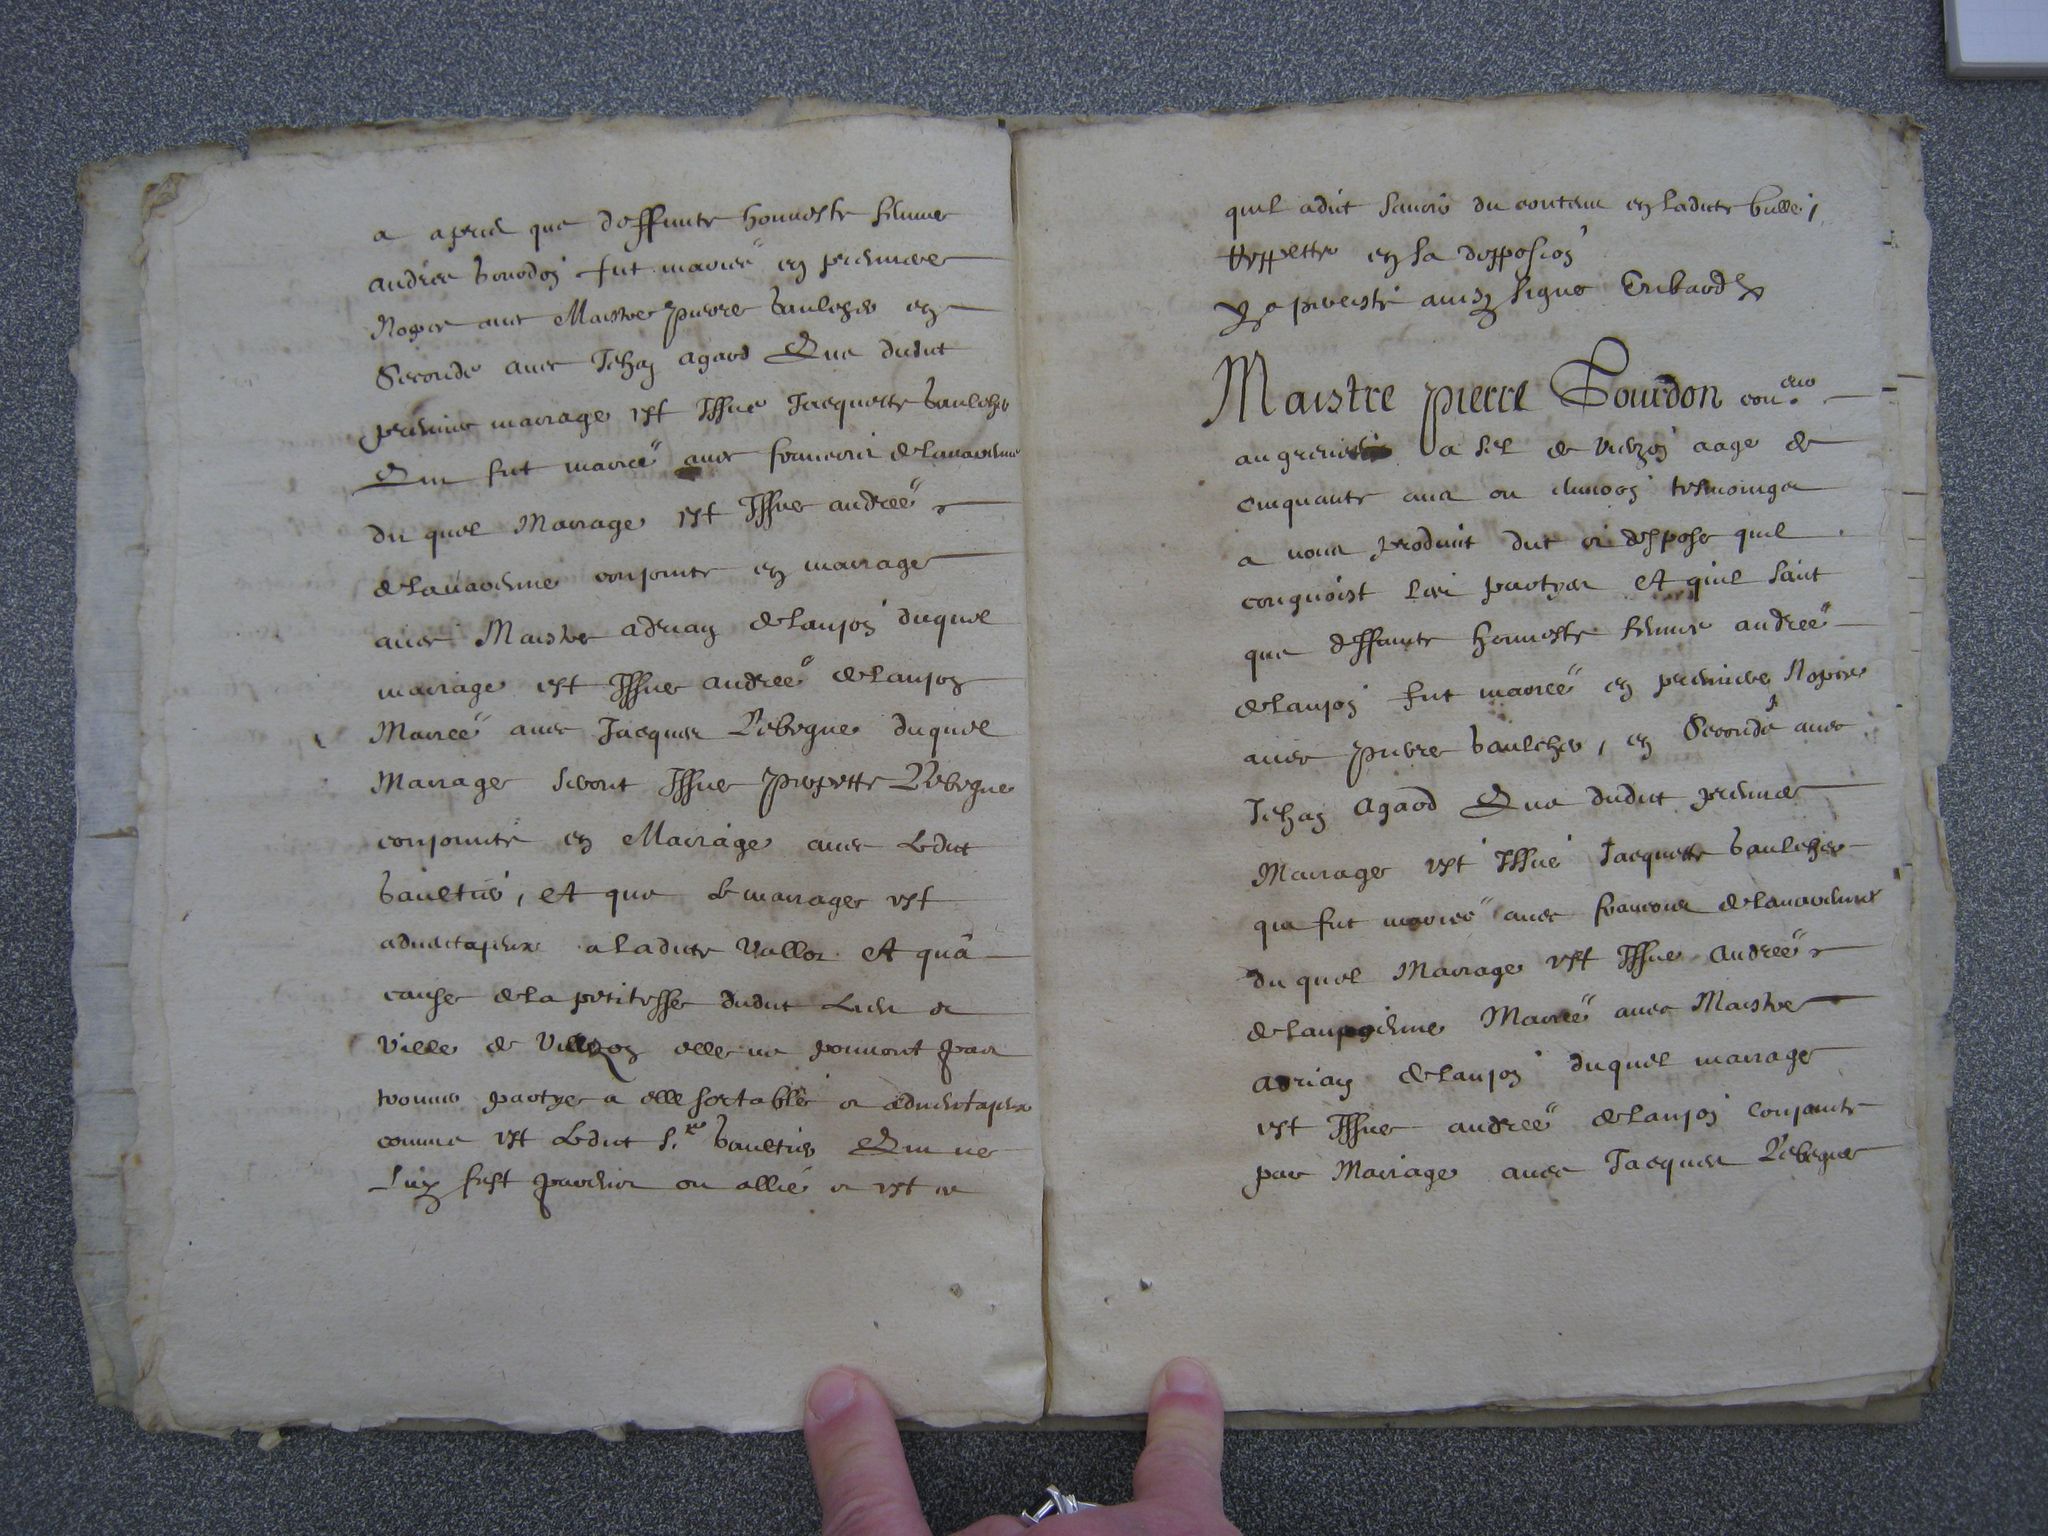 a apris que deffunte honneste femme
andrée bourdon fut mariée en premiere
Nopce avec Maistre pierre baulcher en
Seconde avec Jehan agard Que dudict
premier mariage est Issue Jacquette baulcher
Qui fut mariée avec francois de lavarenne
du quel Mariage est Issue andrée
de lavarenne conjointe en mariage
avec Maistre adrian de lanjon duquel
mariage est Issue andree de lanjon
Mariée avec Jacques Lebegue duquel
Mariage seroit Issue Lebegue
conjointe en Mariage avec Ledict
baultier, et que Le mariage est
advantageux a ladicte et qu'a
cause de la petitesse dudict Lieu et
ville de Vierzon elle ne pouvoit pas
trouver partye a elle sortable et advantageux
comme est Ledict Sr baultier Qui ne
Luy fust parent ou allié et est ce
quil a dict scavoir du contenu en ladicte bulle,
Reppetté en sa depposion
Y a percisté ainsy signé
Maistre pierre Bourdon coner
au grenier a sel de Vierzon aagé de
cinquante ans ou environ tesmoing
a nous produict dict et deppose quil
congnoist Les partyes et quil scait
que deffunte honneste femme andrée
de lanjon fut mariée en premiere Nopce
avec pierre baulcher, en Seconde avec
Jehan Agard Que dudict premier
Mariage est Issue Jacquette baulcher
qui fut mariée avec francois de lavarenne
du quel Mariage est Issue Andrée
Mariée avec Maistre
adrian de lanjon duquel mariage
est Issue andrée de lanjon conjointe
par Mariage avec Jacques Lebegue